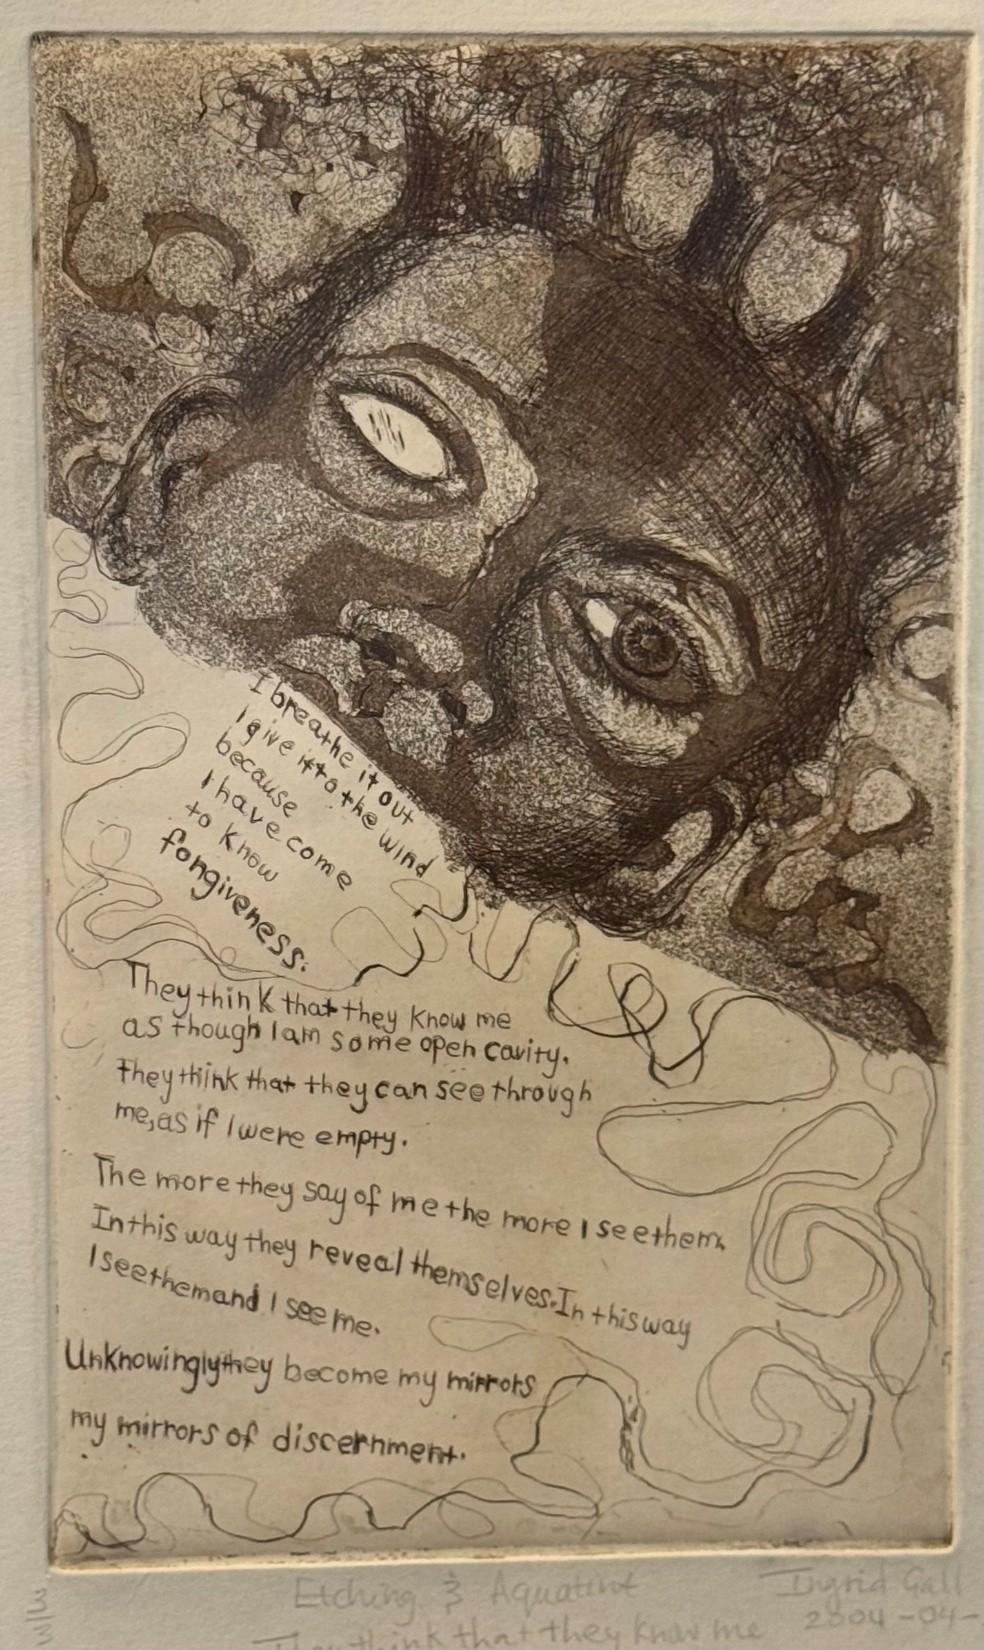 I breathe it out
I give it to the wind
because
I have come
to know
forgiveness.
They think that they know me
as though I am some open cavity.
They think that they can see through
me, as if I were empty.
The more they say of me the more I see them.
In this way they reveal themselves. In this way
I see them and I see me.
Unknowingly they become my mirrors
my mirrors of discernment.
3/3
Etching & Aquatint
Ingrid Gall
2004-04-
They think that they know me